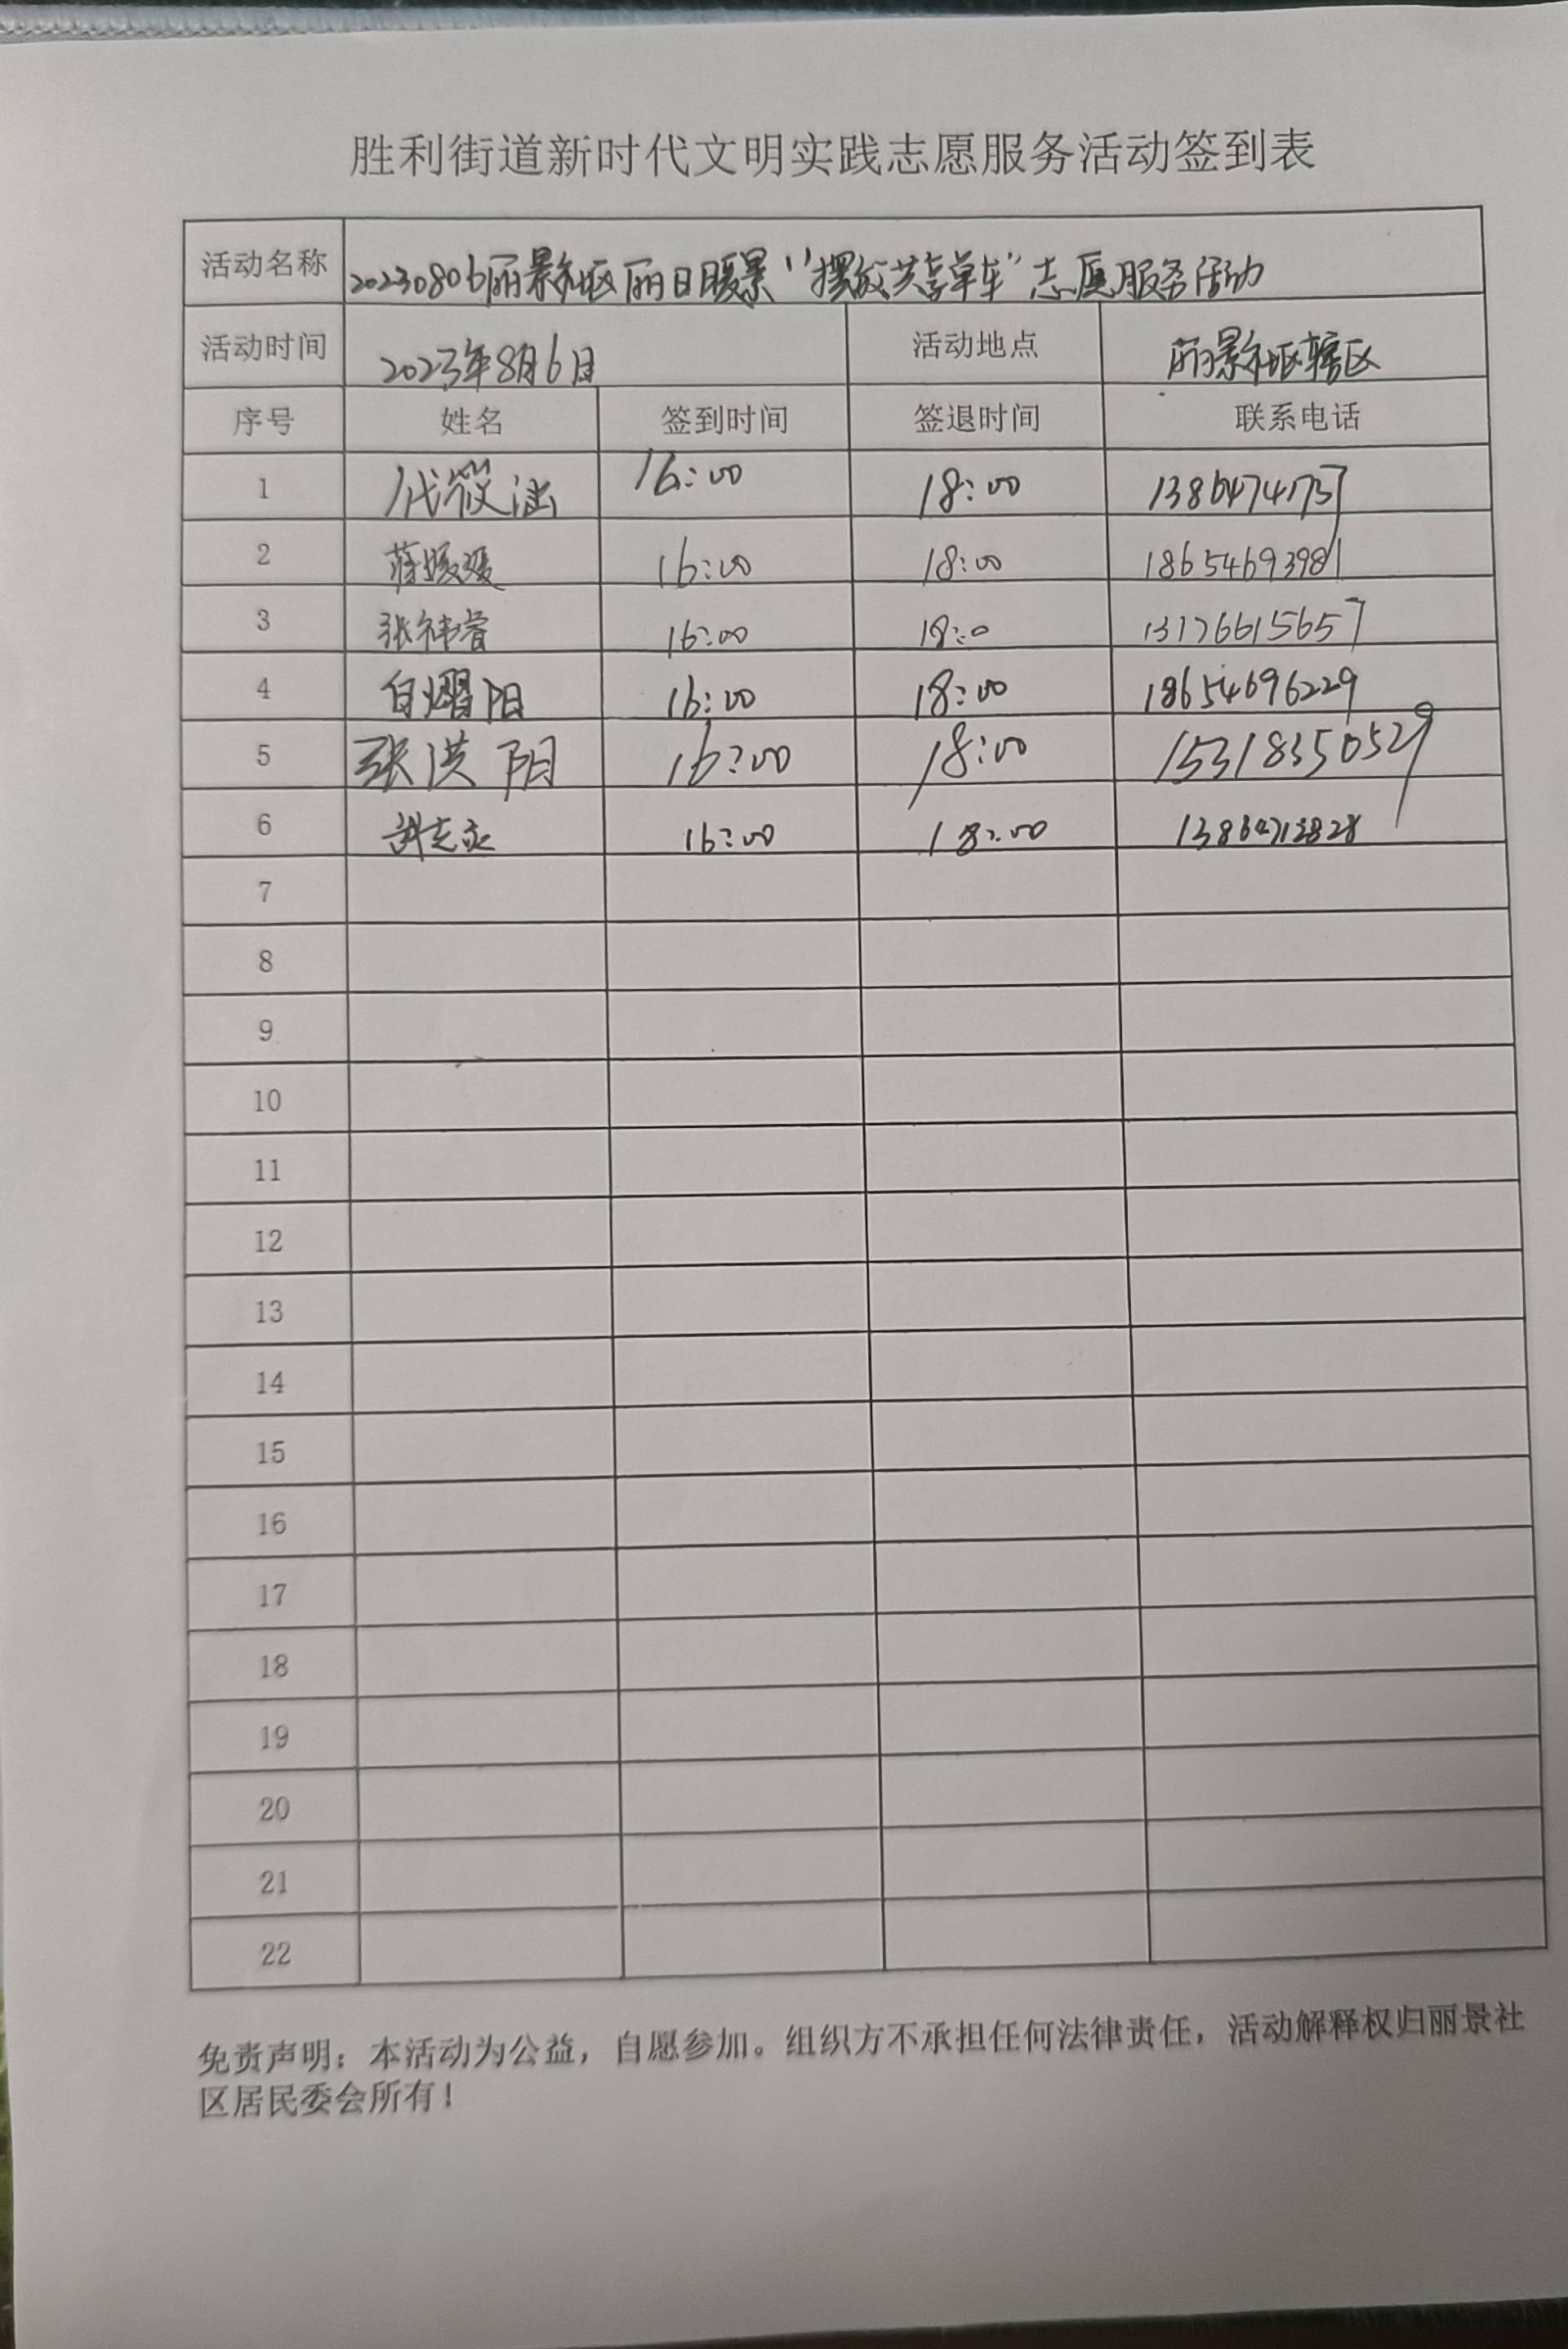 胜利街道新时代文明实践志愿服务活动签到表
活动名称 20230806丽景社区丽日暖景"摆放共享单车"志愿服务活动
活动时间 2023年8月6日 活动地点 丽景社区辖区
序号 姓名 签到时间 签退时间 联系电话
1 代筱涵 16:00 18:00
2 蒋媛媛 16:00 18:00 18654693981
3 张祎睿 16:00 18:0 13176615657
4 白熠阳 16:00 18:00 18654696229
5 张洪阳 16:00 18:00 15318350529
6 16:00 18:00
7
8
9
10
11
12
13
14
15
16
17
18
19
20
21
22
免责声明：本活动为公益，自愿参加。组织方不承担任何法律责任，活动解释权归丽景社
区居民委会所有！